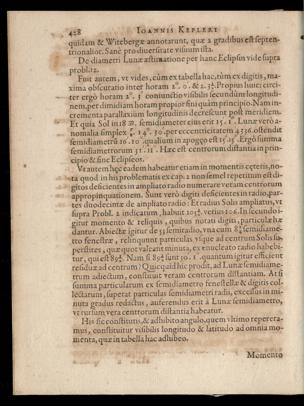 428 IOANNIS KEPLERI
quidam & Witebergæ annotarunt, quæ 2 gradibus est septen-
trionalior. Sanè pro diversitate visuum ista.
De diametri Lunæ æstimatione per hanc Eclipsin vide supra
probl. 12.
Fuit autem, ut vides, cùm ex tabella hac, tùm ex digitis, ma-
xima obscuratio inter horam 2. 0. & 2. 15. Propius hunc circi-
ter ergò horam 2. conjunctio visibilis secundùm longitudi-
nem, per dimidiam horam propior fini quàm principio. Nam in-
crementa parallaxium longitudinis decrescunt post meridiem.
Et quia Sol in semidiameter ejus erit 15. Luna verò a-
nomalia simplex per eccentricitatem 4336. ostendit
semidiametrū 16. 10 qualium in apogæo est 15. Ergò summa
semidiametrorum 31. Hæc est centrorum distantia in prin-
cipio & fine Eclipseos.
Ut autem hæc eadem habeatur etiam in momentis cæteris, no-
ta quod in his problematis ex cap. 2 non semel repetitum est: di-
gitos deficientes in ampliato radio numerare veram centorum
appropinquationem. Sunt verò digiti deficientes in radio, par-
tes duodecimæ de ampliato radio: Et radius Solis ampliatus, ut
supra Probl. 2 indicatum, habuit verius 10. In secundo i-
gitur momento & reliquis, quibus notati digiti, particulæ hæ
dantur. Abjectæ igitur de semiradio, una cum semidiame-
tro fenestræ, relinquunt particulas usque ad centrum Solis su-
perstites, quæ quot valeant minuta, ex nucleato radio habebi-
tur, qui est Nam si sunt quantum igitur efficient
residuæ ad centrum? Quicquid hîc prodit, ad Lunæ semidiame-
trum adjectum, constituit veram centrorum distantiam. At si
summa particularum ex semidiametro fenestellæ & digitis col-
lectarum, superat particulas semidiametri radii, excessus in mi-
nuta gradus redactus, auferendus erit à Lunæ semidiametro,
ut rursum vera centrorum distantia habeatur.
His sic constitutis, & adhibito angulo, quem ultimo repereta-
mus, constituitur visibilis longitudo & latitudo ad omnia mo-
menta, quæ in tabella hac adhibeo.
Momento